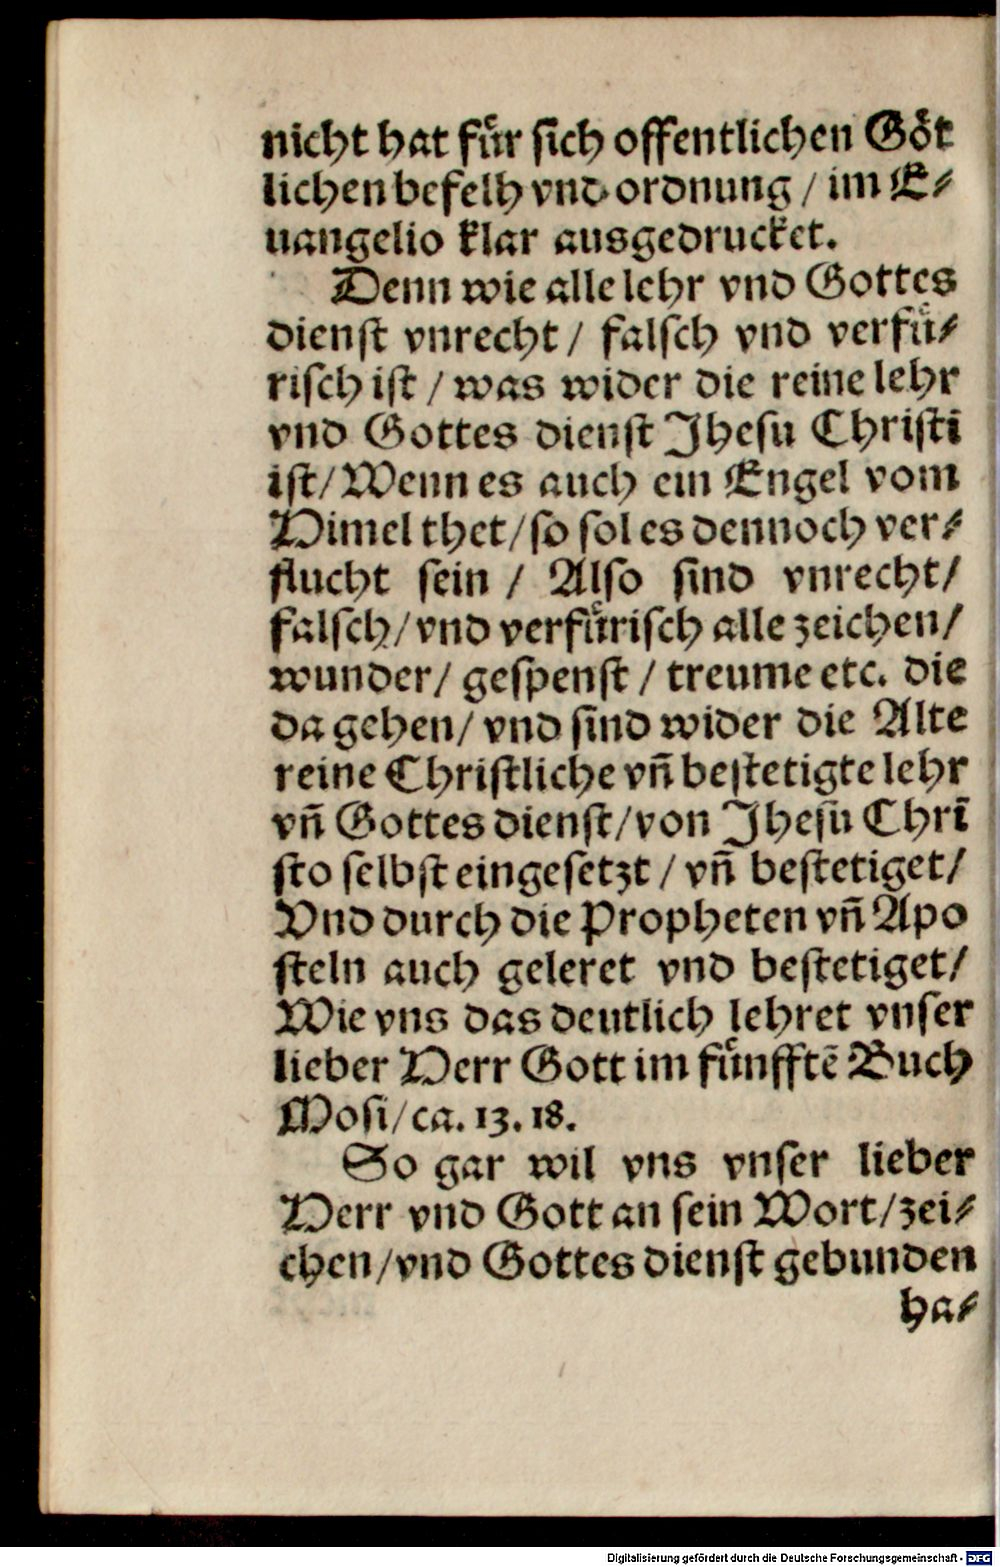 nicht hat fuͤr ſich offentlichen Goͤt
lichen befelh vnd ordnung / im E⸗
uangelio klar ausgedrucket.
Denn wie alle lehr vnd Gottes
dienſt vnrecht / falſch vnd verfuͤ⸗
riſch iſt / was wider die reine lehr
vnd Gottes dienſt Jheſu Chriſti
iſt / Wenn es auch ein Engel vom
Himel thet / ſo ſol es dennoch ver⸗
flucht ſein / Alſo ſind vnrecht /
falſch / vnd verfuͤriſch alle zeichen /
wunder / geſpenſt / treume etc. die
da gehen / vnd ſind wider die Alte
reine Chriſtliche vñ beſtetigte lehr
vñ Gottes dienſt / von Jheſu Chri̅
ſto ſelbſt eingeſetzt / vñ beſtetiget /
Vnd durch die Propheten vñ Apo
ſteln auch geleret vnd beſtetiget /
Wie vns das deutlich lehret vnſer
lieber Herr Gott im fuͤnfftē Buch
Moſi / ca. 13. 18.
So gar wil vns vnſer lieber
Herr vnd Gott an ſein Wort / zei⸗
chen / vnd Gottes dienſt gebunden
ha⸗
Digitalisierung gefördert durch die Deutsche Forschungsgemeinschaft - DFG